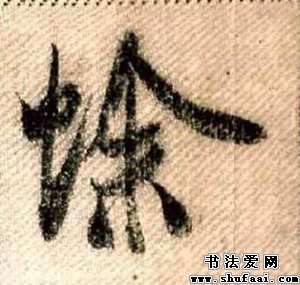 蜍
书法爱网
www.shufaai.com